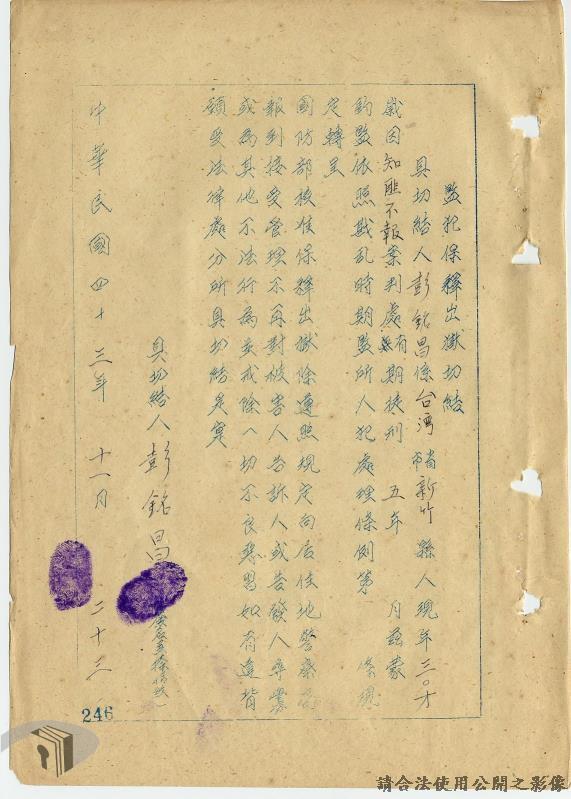 監犯保釋出獄切結
具切結人彭銘昌係台灣省市新竹縣人現年三〇才
歲因知匪不報案判處有期徒刑 五年 月茲蒙
鈞監依照戡乱時期監所人犯處理條例第 條規
定轉呈
國防部核准保釋出獄除遵照規定向居住地警察
報到接受管理不再對被害人告訴人或告發人尋釁
或為其他不法行為並戒除一切不良惡習如有違背
願受法律處分所具切結是實
具切結人彭銘昌
中華民國四十三年 十一月 二十三
246
請合法使用公開之影像